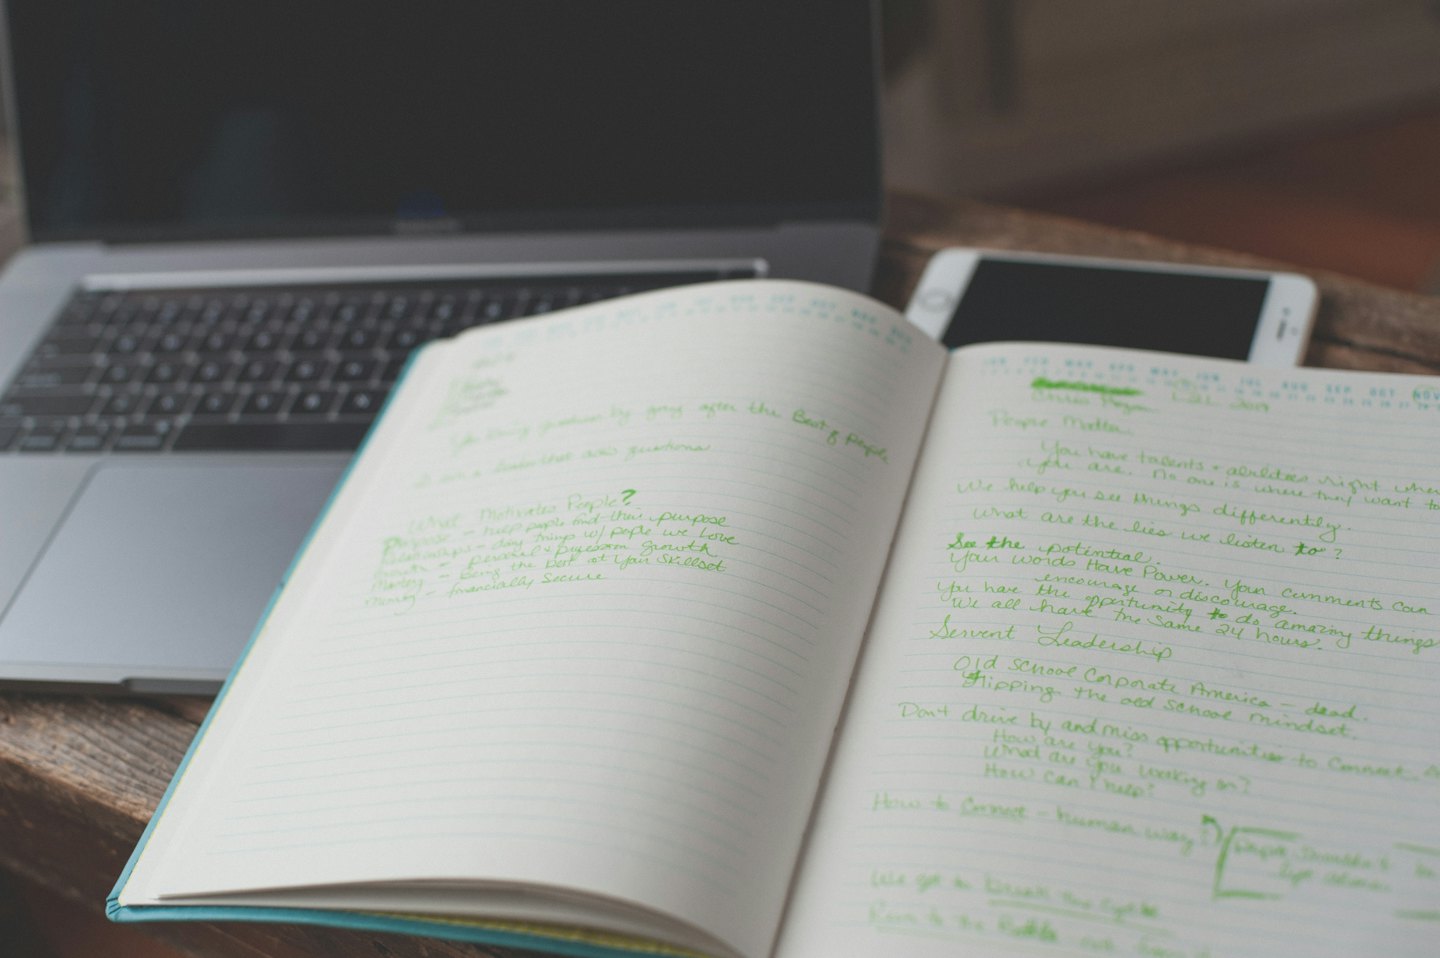 by going after the Best of people
I am a leader that asks questions
What Motivates People?
Purpose - help people find their purpose
Relationships - doing things w/ people we love
Growth - personal & profession growth
Mastery - being the best at your skillset
Money - financially secure
JAN FEB MAR APR MAY JUN JUL AUG SEP OCT NOV
People Matter.
You have talents + abilities right where
you are. No one is where they want to
We help you see things differently.
What are the lies we listen to?
See the potential.
Your words Have Power. Your comments can
encourage or discourage.
You have the opportunity to do amazing things
We all have the same 24 hours.
Servent Leadership
Old School Corporate America - dead.
flipping the old school mindset.
Don't drive by and miss opportunities to connect
How are you?
What are you working on?
How can I help?
How to Connect - human way
We got to break the cycle